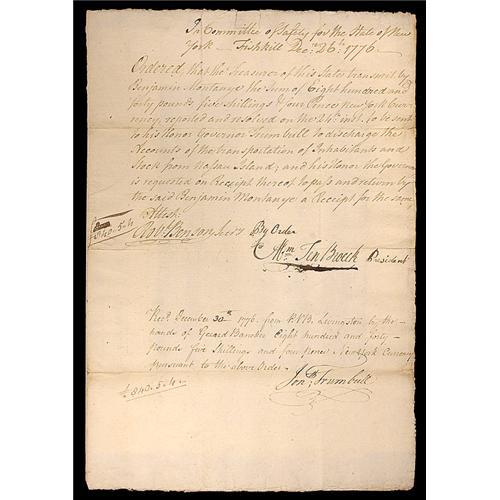 In Committee of Safety for the State of New
York — Fishkill Dec.r 26th: 1776.
Ordered, that the Treasurer of this State transmit by
Benjamin Montanye the Sum of Eight hundred and
forty pounds five Shillings & four Pence New York Curr-
ency, reported and resolved on the 24th inst. to be sent
to his Honor Governor Trumbull to discharge the
Accounts of the transportation of Inhabitants and
Stock from Nassau Island; and his Honor the Governor
is requested on Receipt thereof to pass and return by
the said Benjamin Montanye a Receipt for the same
Attest.
£840.5.4
Robt. Benson Secry By Order
Abm Ten Broeck President
Recd. December 30th 1776. from P.V.B. Livingston by the
hands of Gerard Bancker Eight hundred and forty
pounds five Shillings and four pence New York Currency
pursuant to the above Order.
£840.5.4
Jonth; Trumbull